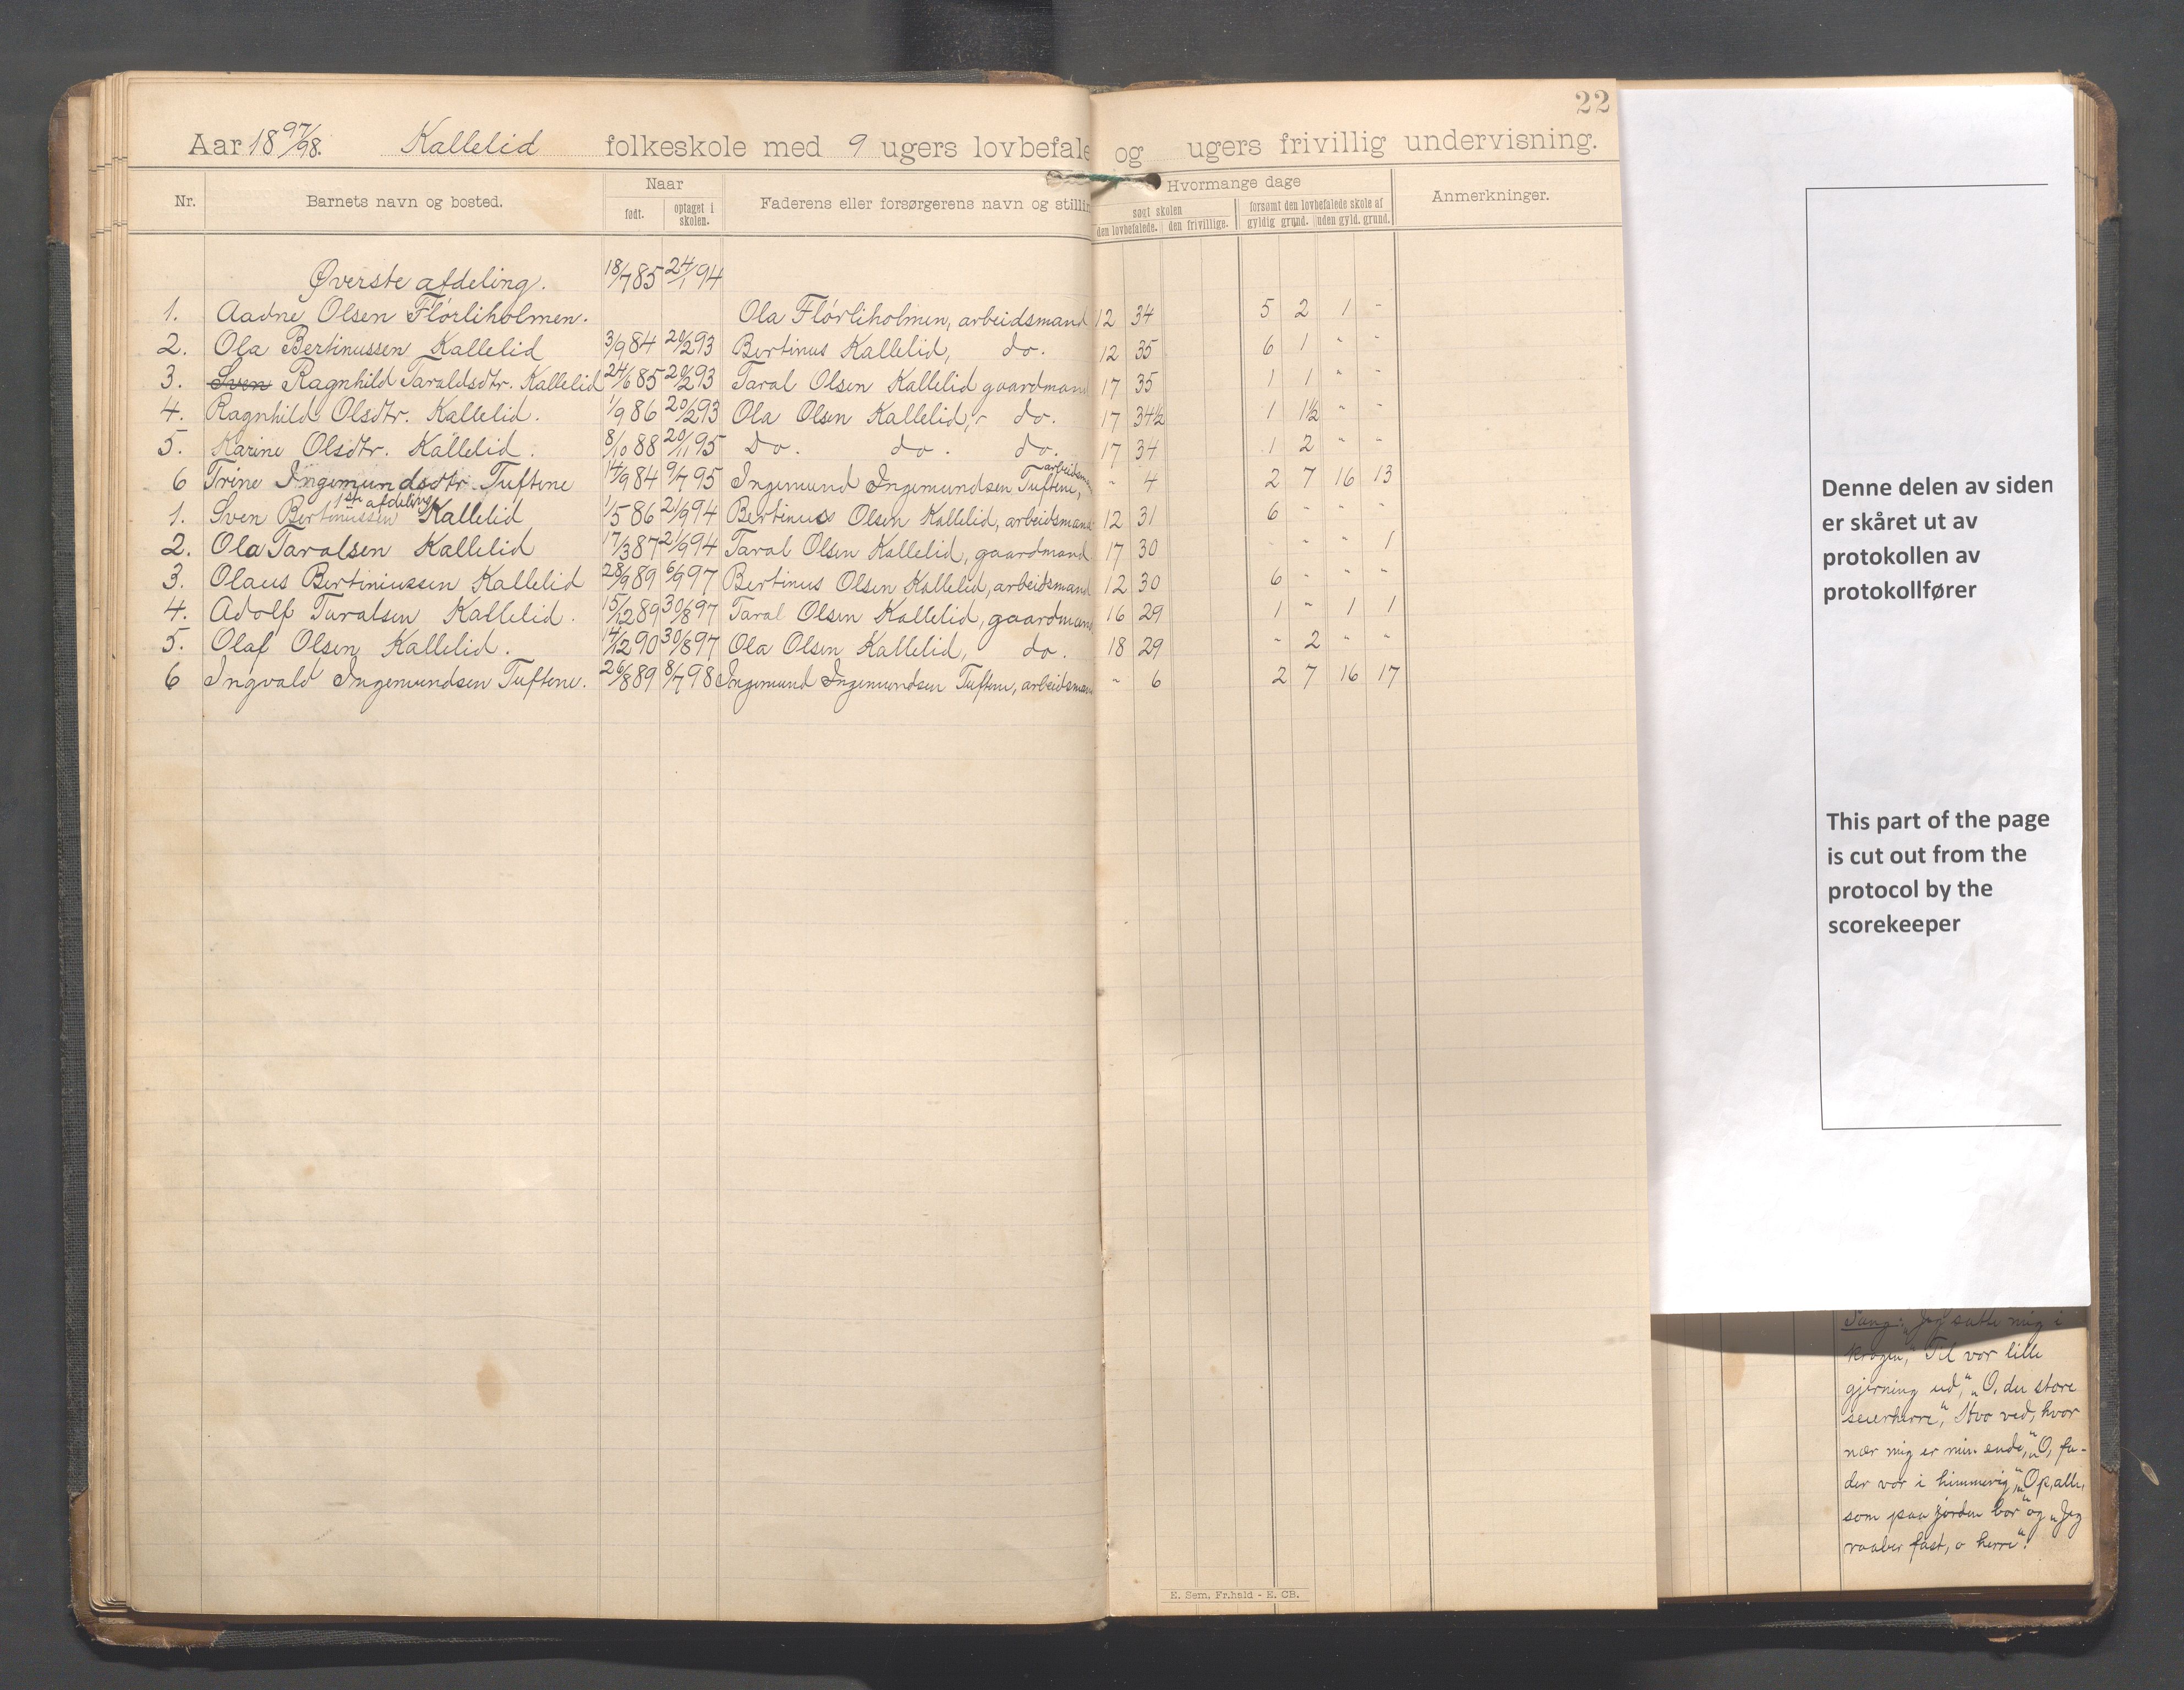 22
Aar 18 97/98. Kallelid folkeskole med 9 ugers lovbefale og ugers frivillig undervisning.
Nr. Barnets navn og bosted. Naar født. optaget i skolen. Faderens eller forsørgerens navn og stillin Hvormange dage søgt skolen den lovbefalede. den frivillige. forsømt den lovbefalede skole af gyldig grund. uden gyld. grund. Anmerkninger.
Øverste afdeling. 18/7 85 24/1 94
1. Aadne Olsen Flórliholmen. Ola Flórliholmen, arbeidsmand 12 34 5 2 1 -
2. Ola Bertinussen Kallelid 3/9 84 20/2 93 Bertinus Kallelid, do. 12 35 6 1 " "
3. Sven Ragnhild Taraldsdtr. Kallelid 24/6 85 20/2 93 Taral Olsen Kallelid gaardmand 17 35 1 1 " "
4. Ragnhild Olsdtr. Kallelid. 1/9 86 20/2 93 Ola Olsen Kallelid, do. 17 34½ 1 1½ " "
5. Karine Olsdtr. Kallelid. 8/10 88 20/11 95 Do. do. do. 17 34 1 2 " "
6 Trine Ingemundsdtr. Tuftene 14/9 84 9/7 95 Ingemund Ingemundsen Tuftene, arbeidsm " 4 2 7 16 13
1ste afdeling
1. Sven Bertinussen Kallelid 1/5 86 21/9 94 Bertinus Olsen Kallelid, arbeidsmand 12 31 6 " " "
2. Ola Taralsen Kallelid 17/3 87 21/9 94 Taral Olsen Kallelid, gaardmand 17 30 " " " 1
3. Olaus Bertiniussen Kallelid 28/9 89 6/9 97 Bertinus Olsen Kallelid, arbeidsmand 12 30 6 " " "
4. Adolf Taralsen Kallelid. 15/12 89 30/8 97 Taral Olsen Kallelid, gaardmand 16 29 1 " 1 1
5. Olaf Olsen Kallelid. 14/12 90 30/8 97 Ola Olsen Kallelid, do. 18 29 " 2 " "
6 Ingvald Ingemundsen Tuftene. 26/8 89 8/7 98 Ingemund Ingemundsen Tuftene, arbeidsmand " 6 2 7 16 17
E. Sem. Fr.hald - E. CB.
Denne delen av siden
er skåret ut av
protokollen av
protokollfører
This part of the page
is cut out from the
protocol by the
scorekeeper
Sang: "Jeg satte mig i
krogen," Til vor lille
gjerning ud," "O, du store
seierherre", Hvo ved, hvor
nær mig er min ende," "O, fa-
der vor i himmerig," "Op, alle,
som paa jorden bor" og "Jeg
raaber fast, o herre".